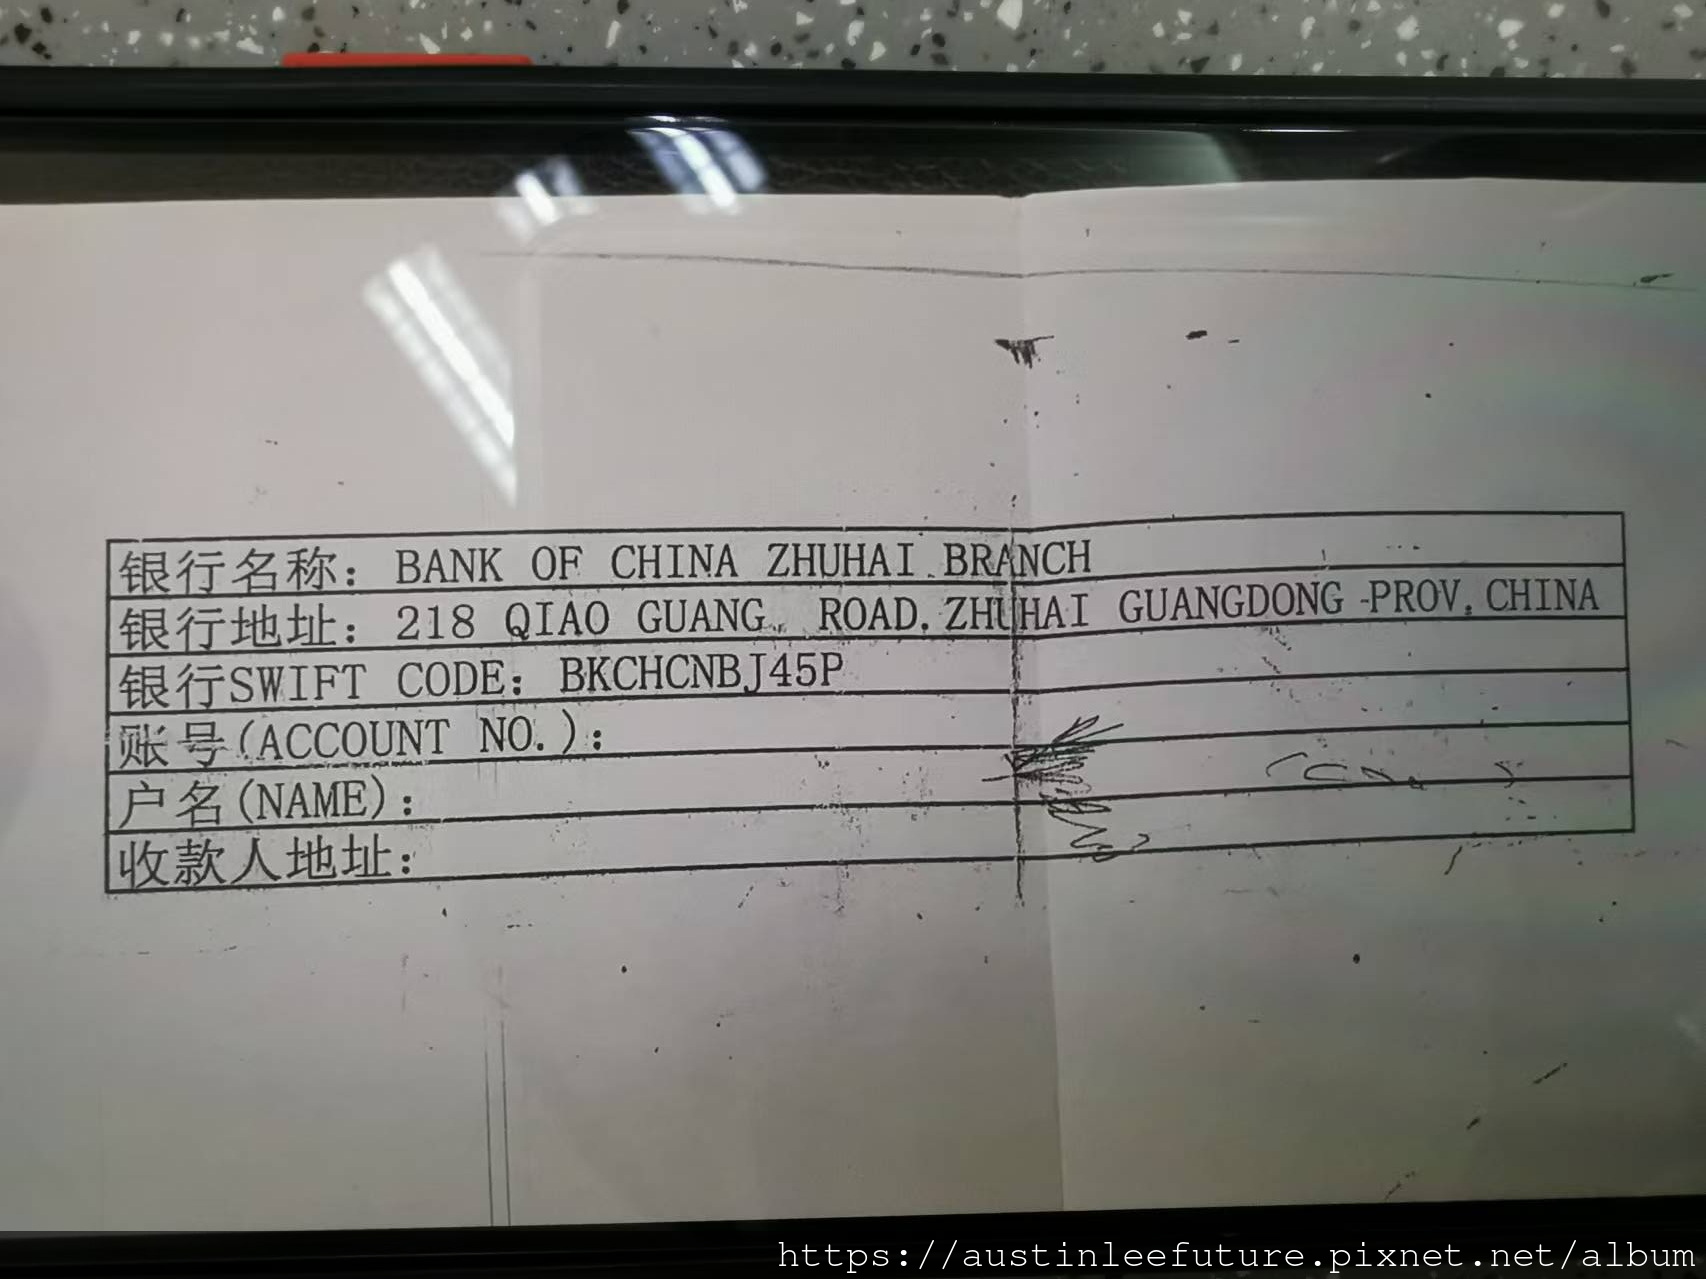 银行名称：BANK OF CHINA ZHUHAI BRANCH
银行地址：218 QIAO GUANG ROAD. ZHUHAI GUANGDONG -PROV. CHINA
银行SWIFT CODE：BKCHCNBJ45P
账号(ACCOUNT NO.)：
户名(NAME)：
收款人地址：
https://austinleefuture.pixnet.net/album